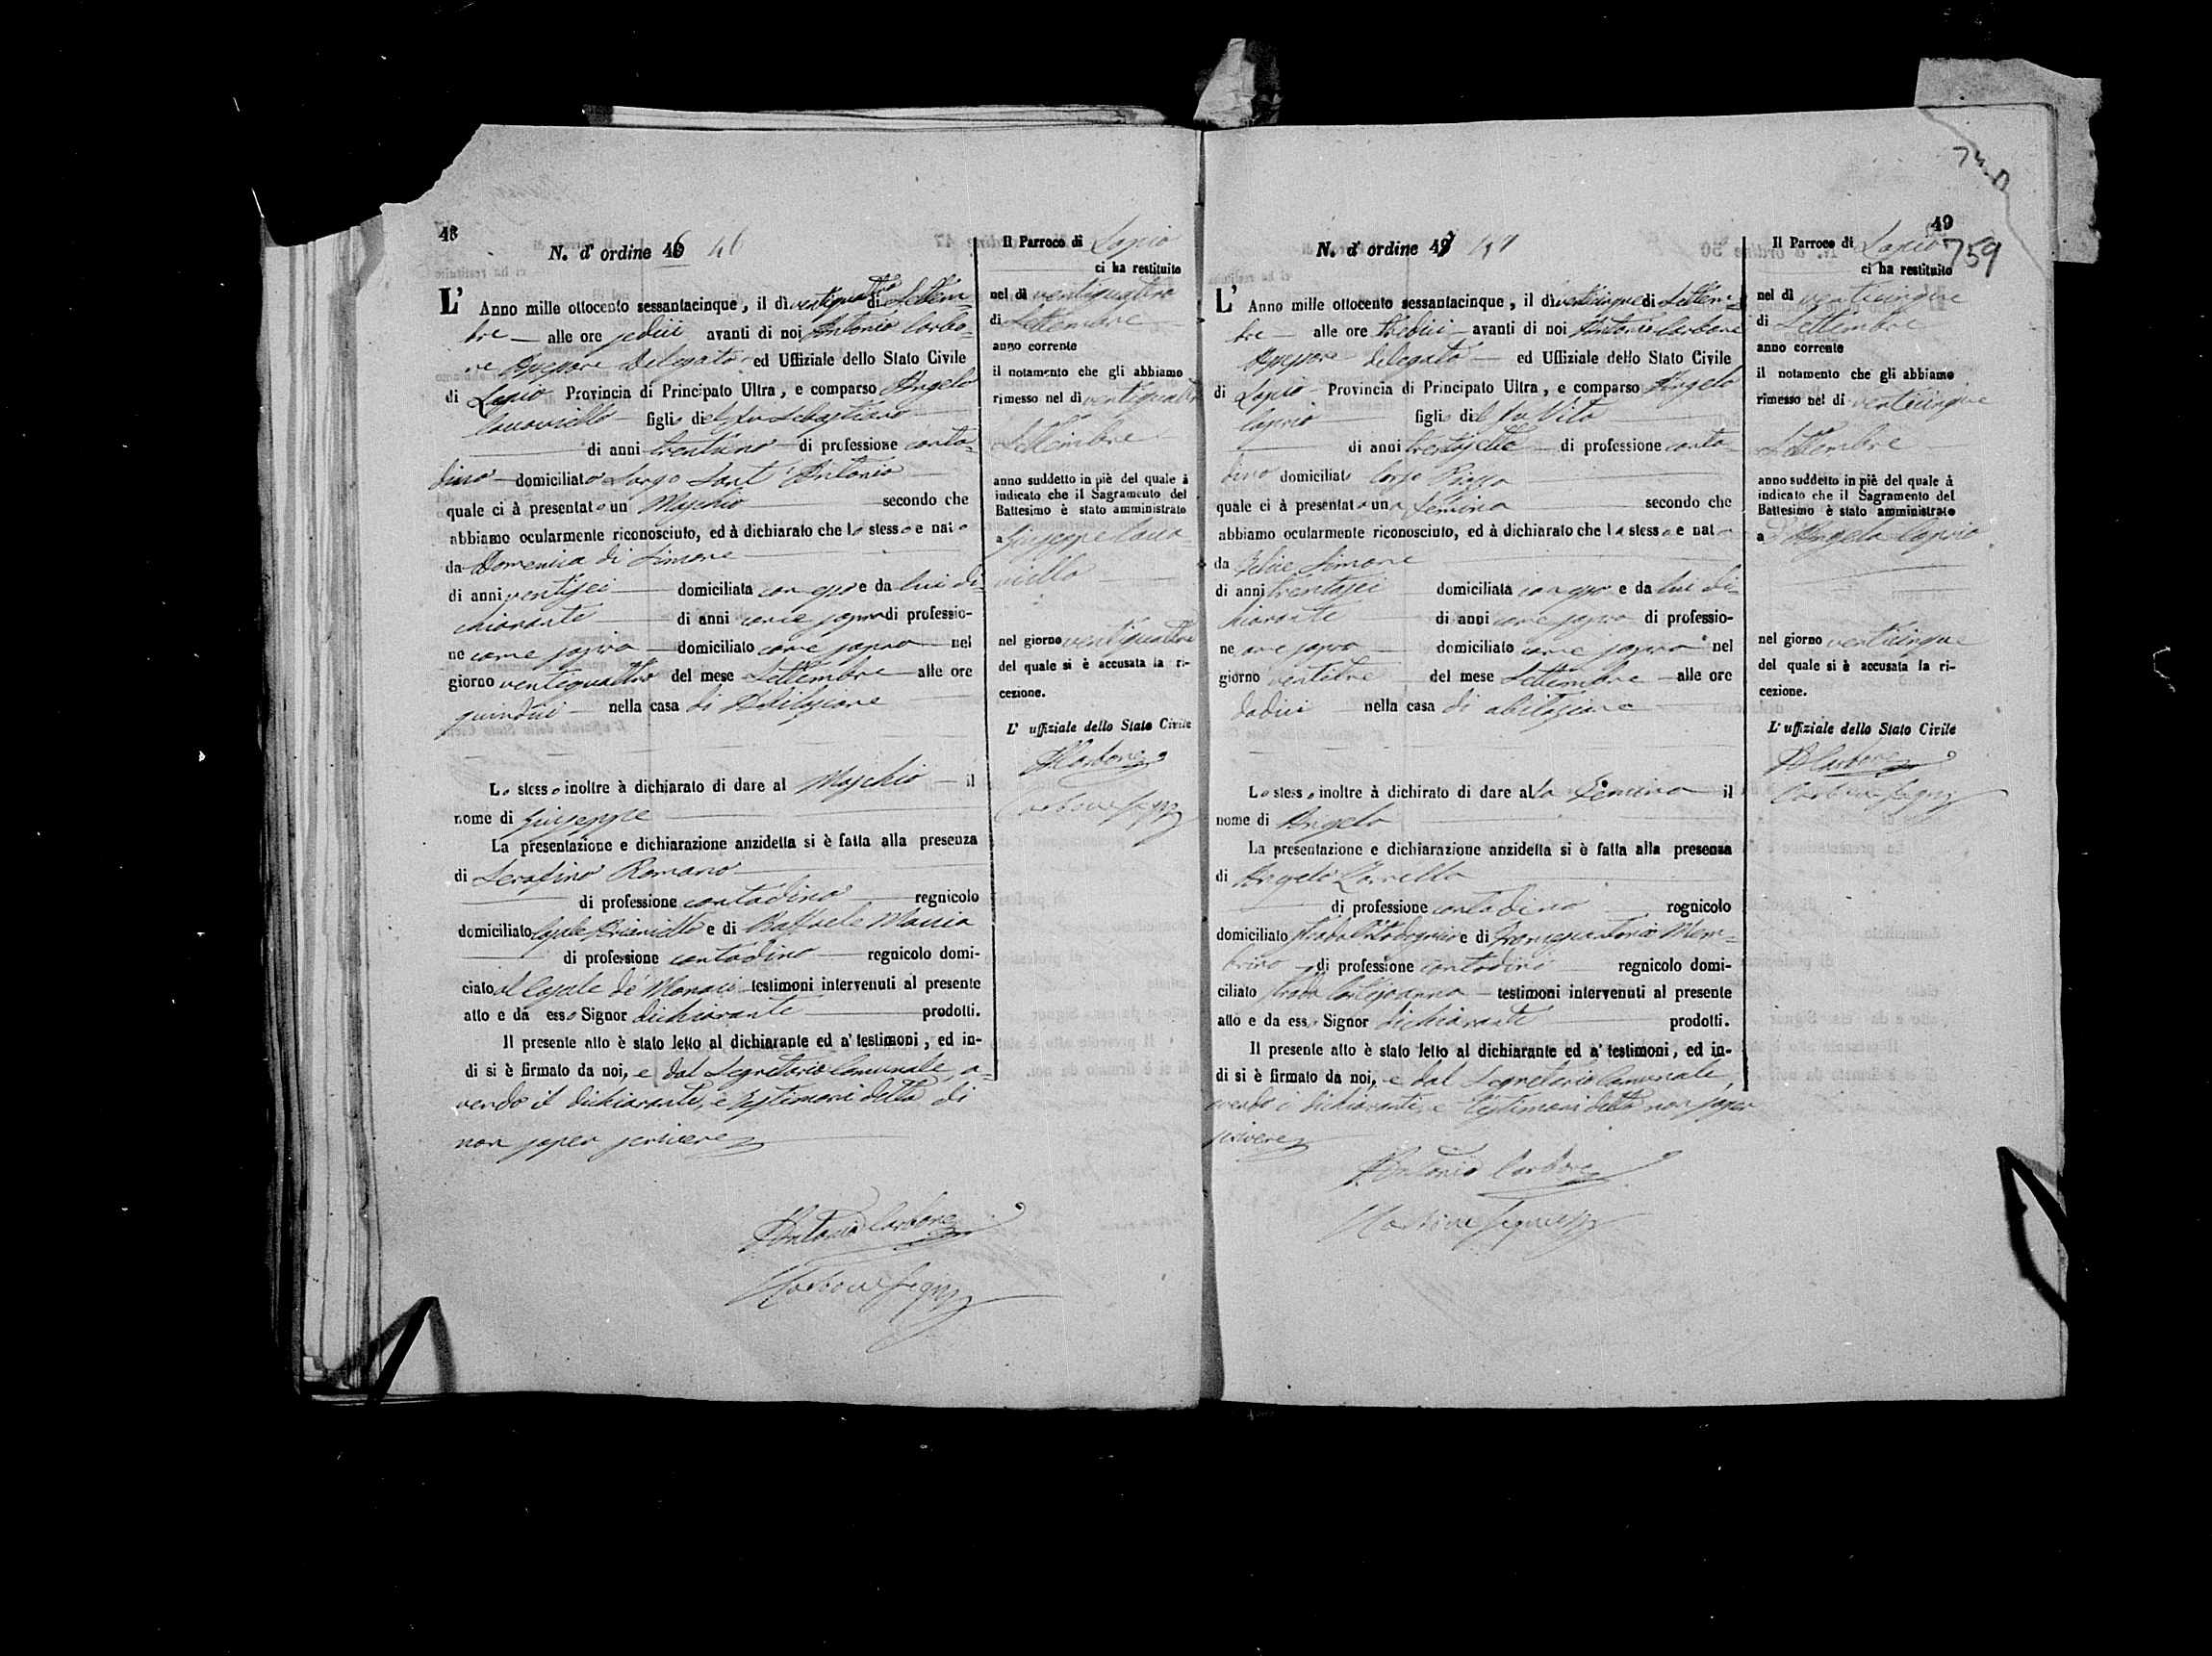 48
N. d' ordine 46 46
L' Anno mille ottocento sessantacinque, il dì ventiquattro di Settem-
bre — alle ore sedici avanti di noi Antonio Carbo-
ne Assessore Delegato ed Uffiziale dello Stato Civile
di Lapio Provincia di Principato Ultra, e comparso Angelo
figlio del fu Sebastiano
di anni trentuno di professione conta-
dino domiciliato Largo Sant' Antonio
quale ci à presentato un Maschio secondo che
abbiamo ocularmente riconosciuto, ed à dichiarato che lo stesso e nato
da Domenica di Simone
di anni ventisei domiciliata con esso e da lui di-
chiarante di anni come sopra di professio-
ne come sopra domiciliato come sopra nel
giorno ventiquattro del mese Settembre alle ore
quindici nella casa di Abitazione
Lo stesso inoltre à dichiarato di dare al Maschio il
nome di Giuseppe
La presentazione e dichiarazione anzidetta si è fatta alla presenza
di Serafino Romano
di professione contadino regnicolo
domiciliato Casale e di Raffaele
di professione contadino regnicolo domi-
ciato al Casale de' Monaci testimoni intervenuti al presente
atto e da esso Signor dichiarante prodotti.
Il presente atto è stato letto al dichiarante ed a' testimoni, ed in-
di si è firmato da noi, e dal Segretario Comunale, a-
vendo il dichiarante, e testimoni detto di
non saper scrivere
Antonio Carbone
Carbone Segr
Il Parroco di Lapio
ci ha restituito
nel dì ventiquattro
di Settembre
anno corrente
il notamento che gli abbiamo
rimesso nel dì ventiquattro
Settembre
anno suddetto in piè del quale à
indicato che il Sagramento del
Battesimo è stato amministrato
a Giuseppe
nel giorno ventiquattro
del quale si è accusata la ri-
cezione.
L' uffiziale dello Stato Civile
A Carbone
Carbone Segr
74.D
49
759
N. d' ordine 47 47
L' Anno mille ottocento sessantacinque, il dì venticinque di Settem-
bre — alle ore tredici avanti di noi Antonio Carbone
Assessore delegato ed Uffiziale dello Stato Civile
di Lapio Provincia di Principato Ultra, e comparso Angelo
Caprio figlio del fu Vito
di anni trentasette di professione conta-
dino domiciliato Largo Piazza
quale ci à presentata una Femina secondo che
abbiamo ocularmente riconosciuto, ed à dichiarato che la stessa e nata
da Felice Simone
di anni trentasei domiciliata con esso e da lui di-
chiarante di anni come sopra di professio-
ne come sopra domiciliato come sopra nel
giorno ventitre del mese Settembre alle ore
dodici nella casa di abitazione
Lo stesso inoltre à dichirato di dare alla Femina il
nome di Angela
La presentazione e dichiarazione anzidetta si è fatta alla presenza
di Angelo
di professione contadino regnicolo
domiciliato strada e di Francescantonio Mem-
brino di professione contadino regnicolo domi-
ciliato strada testimoni intervenuti al presente
atto e da esso Signor dichiarante prodotti.
Il presente atto è stato letto al dichiarante ed a' testimoni, ed in-
di si è firmato da noi, e dal Segretario Comunale,
avendo i dichiarante, e testimoni detto non saper
scrivere
Antonio Carbone
Carbone Segr
Il Parroco di Lapio
ci ha restituito
nel dì venticinque
di Settembre
anno corrente
il notamento che gli abbiamo
rimesso nel dì venticinque
Settembre
anno suddetto in piè del quale à
indicato che il Sagramento del
Battesimo è stato amministrato
a Angela Caprio
nel giorno venticinque
del quale si è accusata la ri-
cezione.
L' uffiziale dello Stato Civile
A Carbone
Carbone Segr